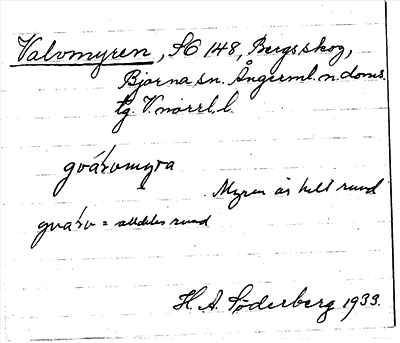 Valvmyren, SO 148, Bergsskog,
Bjärna sn. Ångerml. n. doms.
tg. V.norrl. l.
gvárvmyra
Myren är helt rund
gvárv = alldeles rund
H. A. Söderberg 1933.